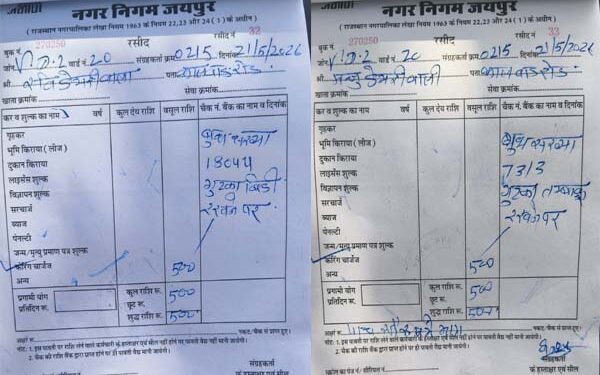 नगर निगम जयपुर
( राजस्थान नगरपालिका लेखा नियम 1963 के नियम 22,23 और 24 ( 1 ) के अधीन )
रसीद 32
बुक नं. 270250
जोन वि.जा.2 वार्ड नं. 20 संग्रहकर्ता क्रमांक 0215 दिनांक 21/5/2026
श्री रवि डेयरीवाला पता कालवाड रोड
खाता क्रमांक सेवा क्रमांक
कर व शुल्क का नाम वर्ष कुल देय राशि वसूल राशि चैक नं. बैंक का नाम व दिनांक
गृहकर
भूमि किराया ( लीज )
दुकान किराया 18044
लाइसेंस शुल्क
विज्ञापन शुल्क गुटका बिडी
सरचार्ज
ब्याज रखने पर
पेनल्टी
जन्म/मृत्यु प्रमाण पत्र शुल्क
कैरिंग चार्जेज 500
अन्य
प्रगामी योग कुल राशि रू. 500
प्रतिदिन रू. छूट रू.
शुद्ध राशि रू. 500
नोट: 1. इस पावती पर राशि लेने वाले कर्मचारी के हस्ताक्षर एवं सील नहीं होने पर पावती वैद्य नहीं मानी जायेगी।
2. चैक की राशि बैंक द्वारा प्राप्त होने पर ही पावती वैद्य मानी जायेगी।
संग्रहकर्ता
के हस्ताक्षर एवं सील
नगर निगम जयपुर
( राजस्थान नगरपालिका लेखा नियम 1963 के नियम 22,23 और 24 ( 1 ) के अधीन )
रसीद 33
बुक नं. 270250
जोन वि.जा.2 वार्ड नं. 20 संग्रहकर्ता क्रमांक 0215 दिनांक 21/5/2026
श्री डेयरीवाला पता कालवाड रोड
खाता क्रमांक सेवा क्रमांक
कर व शुल्क का नाम वर्ष कुल देय राशि वसूल राशि चैक नं. बैंक का नाम व दिनांक
गृहकर
भूमि किराया ( लीज )
दुकान किराया
लाइसेंस शुल्क 7313
विज्ञापन शुल्क गुटका तम्बाकू
सरचार्ज
ब्याज रखने पर
पेनल्टी
जन्म/मृत्यु प्रमाण पत्र शुल्क
कैरिंग चार्जेज 500
अन्य
प्रगामी योग कुल राशि रू. 500
प्रतिदिन रू. छूट रू.
शुद्ध राशि रू. 500
नोट: 1. इस पावती पर राशि लेने वाले कर्मचारी के हस्ताक्षर एवं सील नहीं होने पर पावती वैद्य नहीं मानी जायेगी।
2. चैक की राशि बैंक द्वारा प्राप्त होने पर ही पावती वैद्य मानी जायेगी।
संग्रहकर्ता
के हस्ताक्षर एवं सील